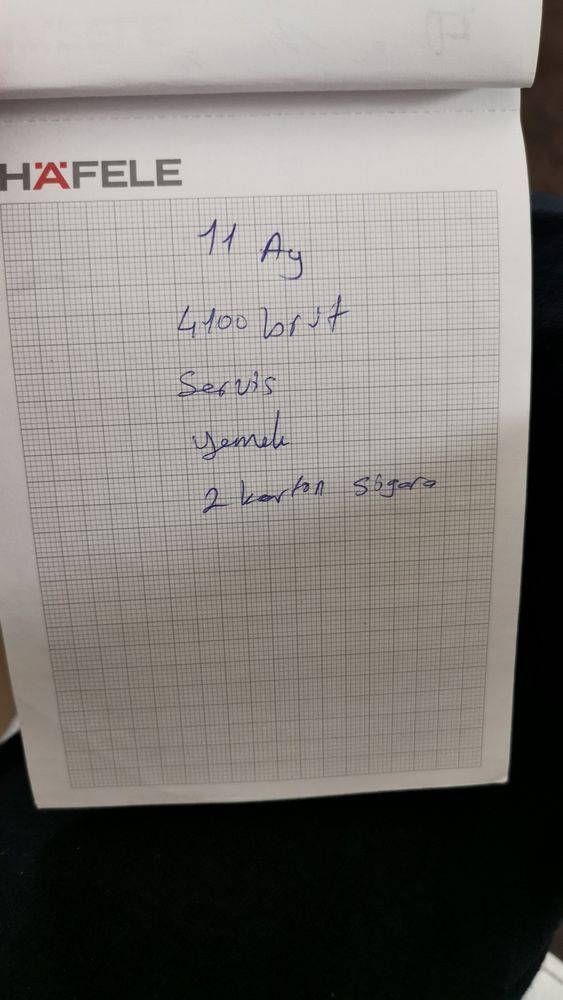 HÄFELE
11 Ay
4100 brüt
Servis
yemek
2 karton sigara